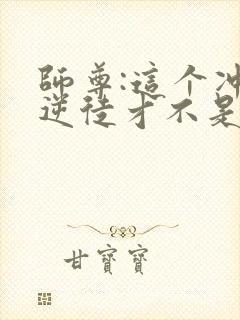 師尊:這个冲
逆徒才不是
甘寶寶